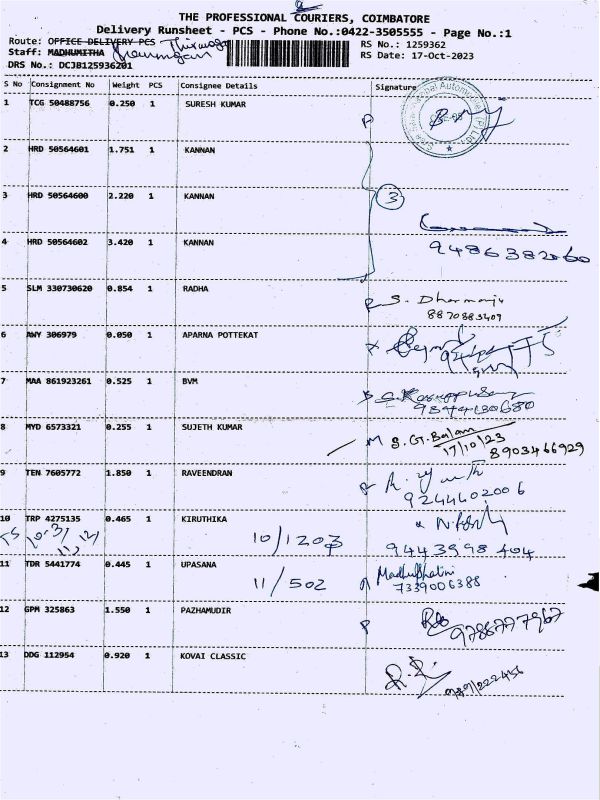 THE PROFESSIONAL COURIERS, COIMBATORE
Delivery Runsheet - PCS - Phone No.:0422-3505555 - Page No.:1
Route: OFFICE DELIVERY PCS
RS No.: 1259362
Staff: MADHUMITHA
RS Date: 17-Oct-2023
DRS No.: DCJB125936201
S No Consignment No Weight PCS Consignee Details Signature
1 TCG 50488756 0.250 1 SURESH KUMAR
2 HRD 50564601 1.751 1 KANNAN
3 HRD 50564600 2.220 1 KANNAN
3
4 HRD 50564602 3.420 1 KANNAN
9486382060
5 SLM 330730620 0.854 1 RADHA
S. Dharmaraju
8870883409
6 AWY 306979 0.050 1 APARNA POTTEKAT
7 MAA 861923261 0.525 1 BVM
9344130680
8 MYD 6573321 0.255 1 SUJETH KUMAR
S.GT.Balan
17/10/23
8903466929
9 TEN 7605772 1.850 1 RAVEENDRAN
9244402006
10 TRP 4275135 0.465 1 KIRUTHIKA
10/1203
9443998404
11 TDR 5441774 0.445 1 UPASANA
11/502
7339006388
12 GPM 325863 1.550 1 PAZHAMUDIR
9786777967
13 DDG 112954 0.920 1 KOVAI CLASSIC